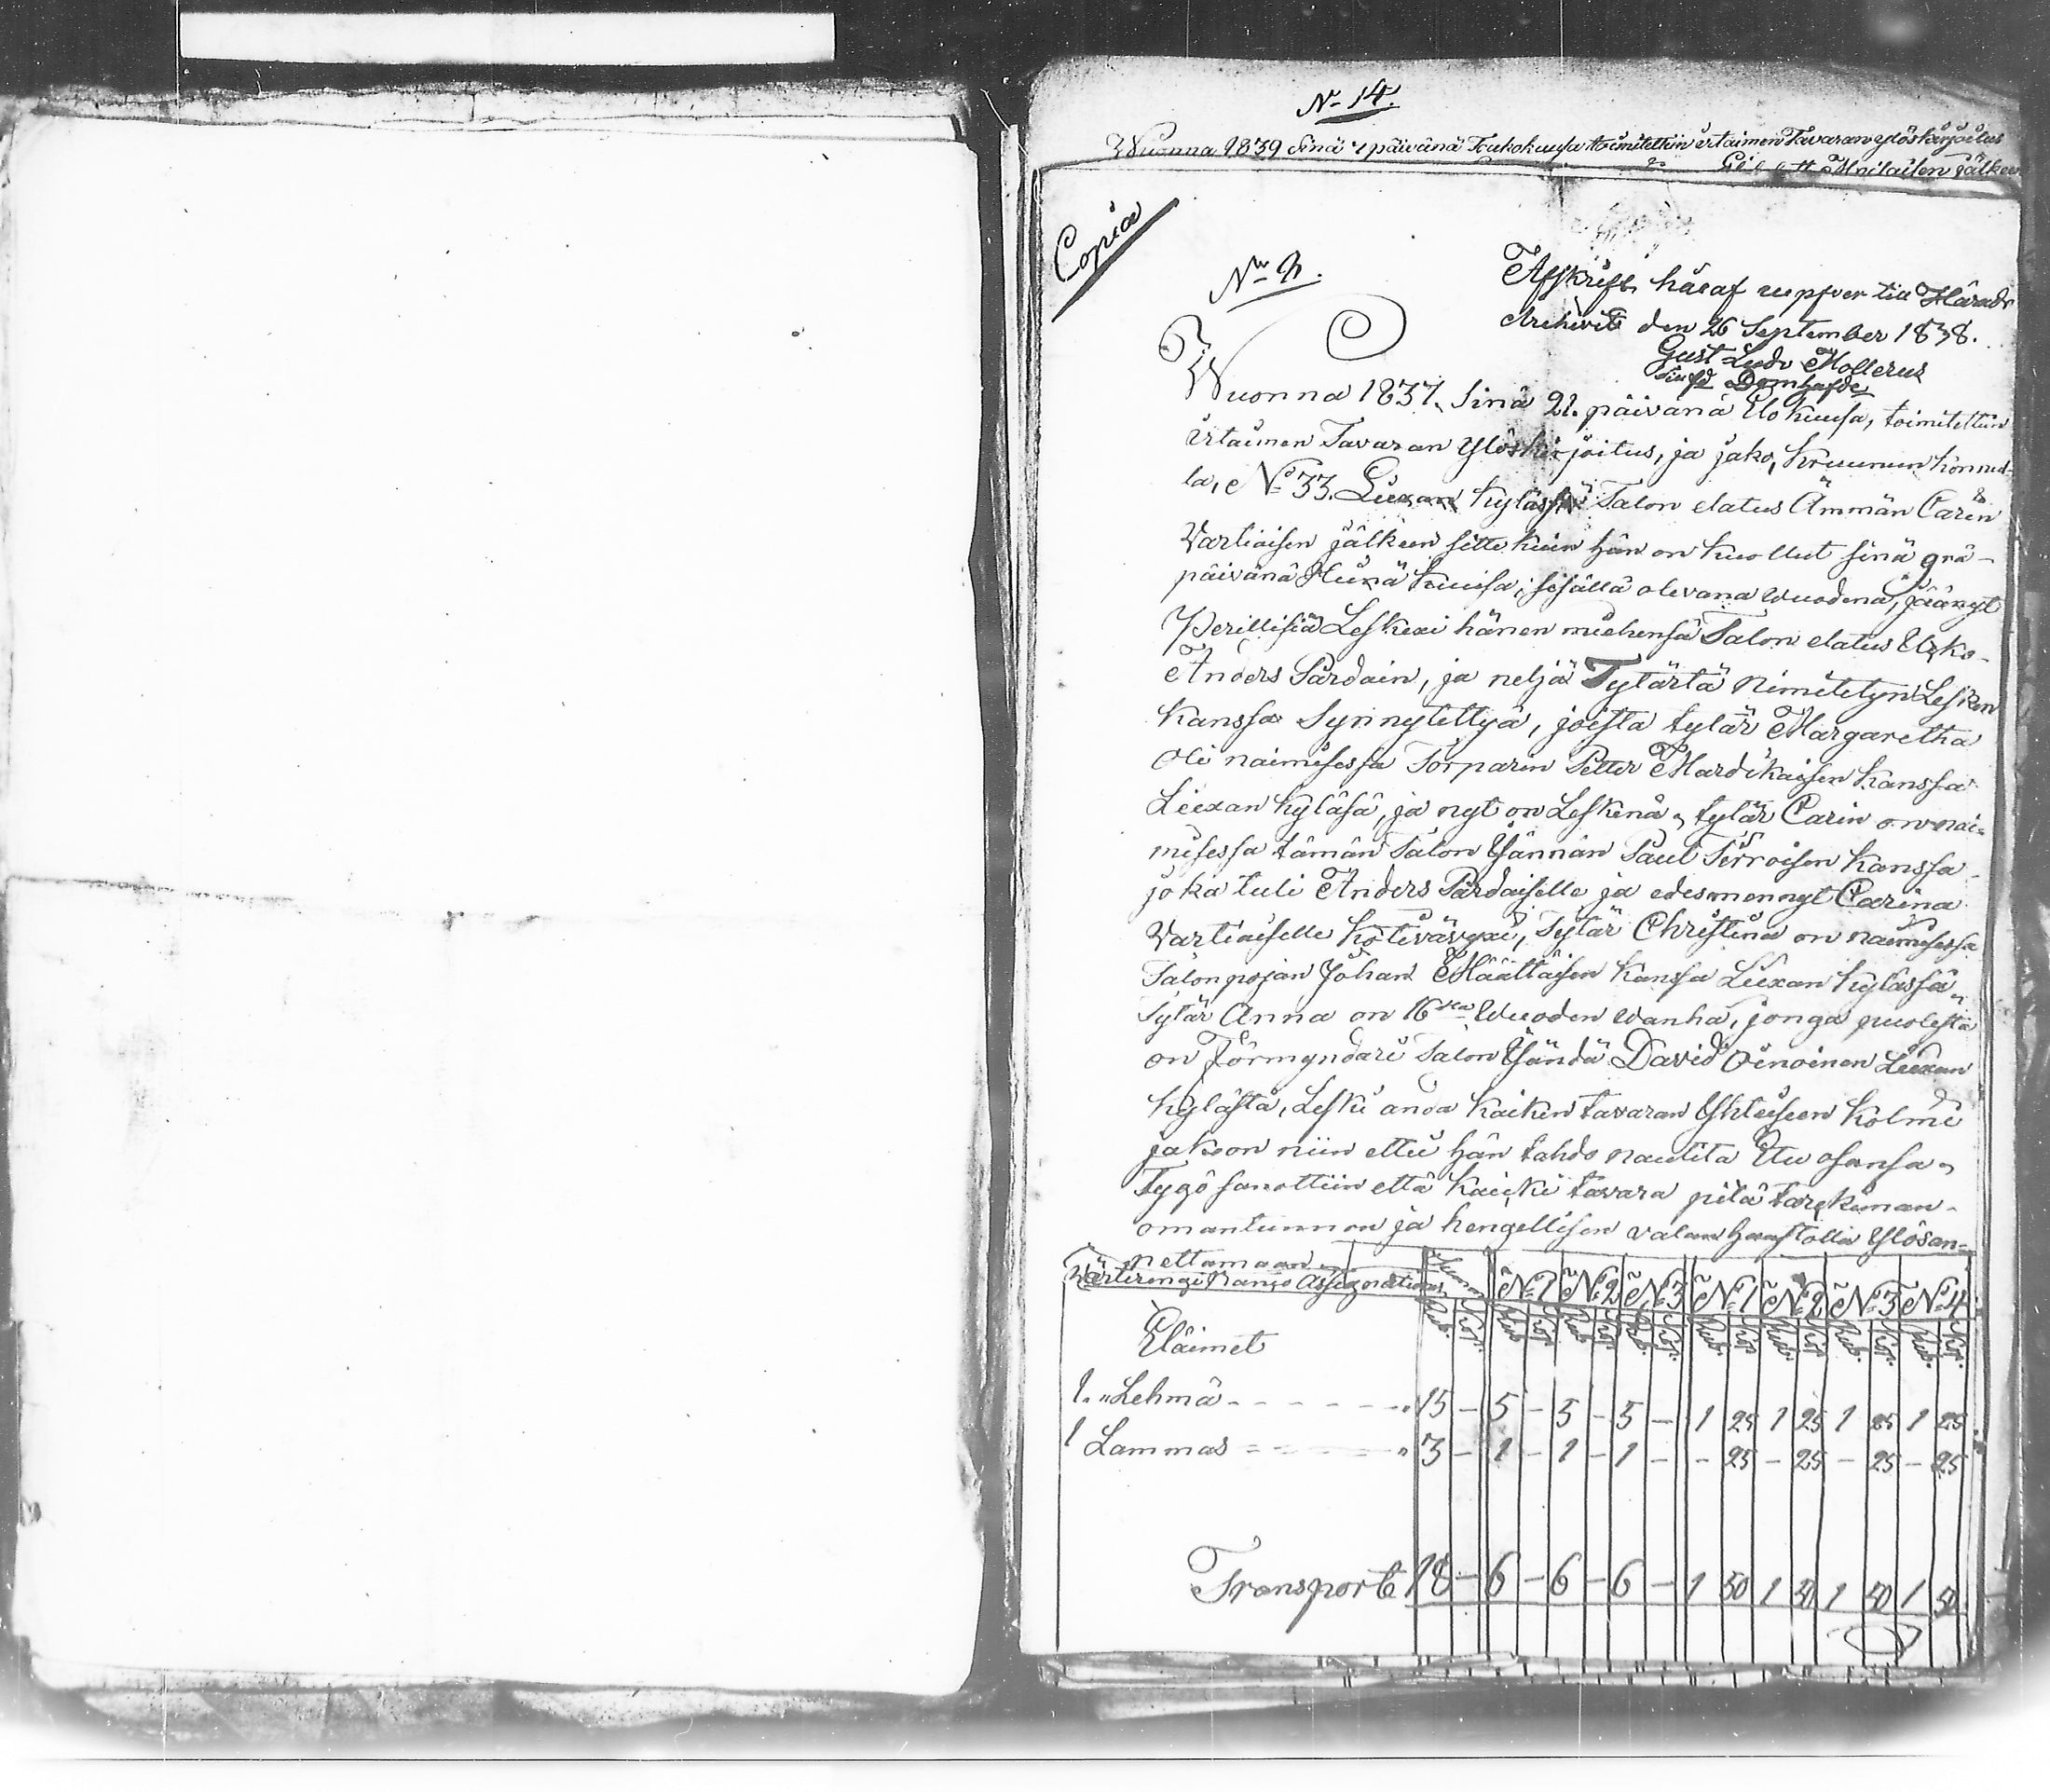 No 14.
Wuonna 1839 Sinä päivänä Toukokuusa toimitettiin irtaimen Tavaran ylöskirjoitus
jälkeen
Copia
No
Afskrift häraf uupfver til Härads
Archivet den 26 September 1838.
Gust Ludv Mollerus
Domhafde
Wuonna 1837, Sinä 21. päivänä Elokuusa, toimitettiin
irtaimen Tavaran Ylöskirjoitus, ja jako, Kruunun Konnul-
la, No 33. Liexan kylässä Talon elatus Ämmän Carin
Vartiaisen jälkeen sitte kuin hän on kuollut sinä
päivänä Heinä kuusa, sisällä olevana wuodena, jäänyt
Perillisiä Leskexi hänen miehensä Talon elatus Ukko
Anders Pardain, ja neljä Tytärtä nimitetyn Lesken
kanssa Synnytettyä, joista tytär Margaretha
oli naimisessa Torparin Petter Mardikaisen kanssa
Liexan kyläsä, ja nyt on Leskenä, tytär Carin on nai-
misessa tämän Talon Isännän Paul Terroisen kanssa
joka tuli Anders Pardaiselle ja edesmennyt Carina
Vartiaiselle Kotivävyxi, Tytär Christina on naimisessa
Talonpojan Johan Määttäisen kansa Liexan kylässä,
Tytär Anna on 16sta Wuoden wanha, jonga puolesta
on Förmyndari Talon Isändä David Oinoinen Liexan
kylästä, Leski anda kaiken tavaran Yhteiseen kolmi
jakoon niin ettei hän tahdo nautita Etu osansa,
Tygö sanottiin että kaicki tavara pitä tarckiman
omantunnon ja hengellisen valan haastolla Ylösan-
nettaman
Assignationis Summa No 1 No 2 No 3 No 1 No 2 No 3 No 4
Rub. Kop. Rub. Kop. Rub. Kop. Rub. Kop. Rub. Kop. Rub. Kop. Rub. Kop. Rub. Kop.
Eläimet
1. „ Lehmä - - - - - - „ 15 - 5 - 5 - 5 - 1 25 1 25 1 25 1 25
1 Lammas - - - - „ 3 - 1 - 1 - 1 - - 25 - 25 - 25 - 25
Transport 18 - 6 - 6 - 6 - 1 50 1 50 1 50 1 50